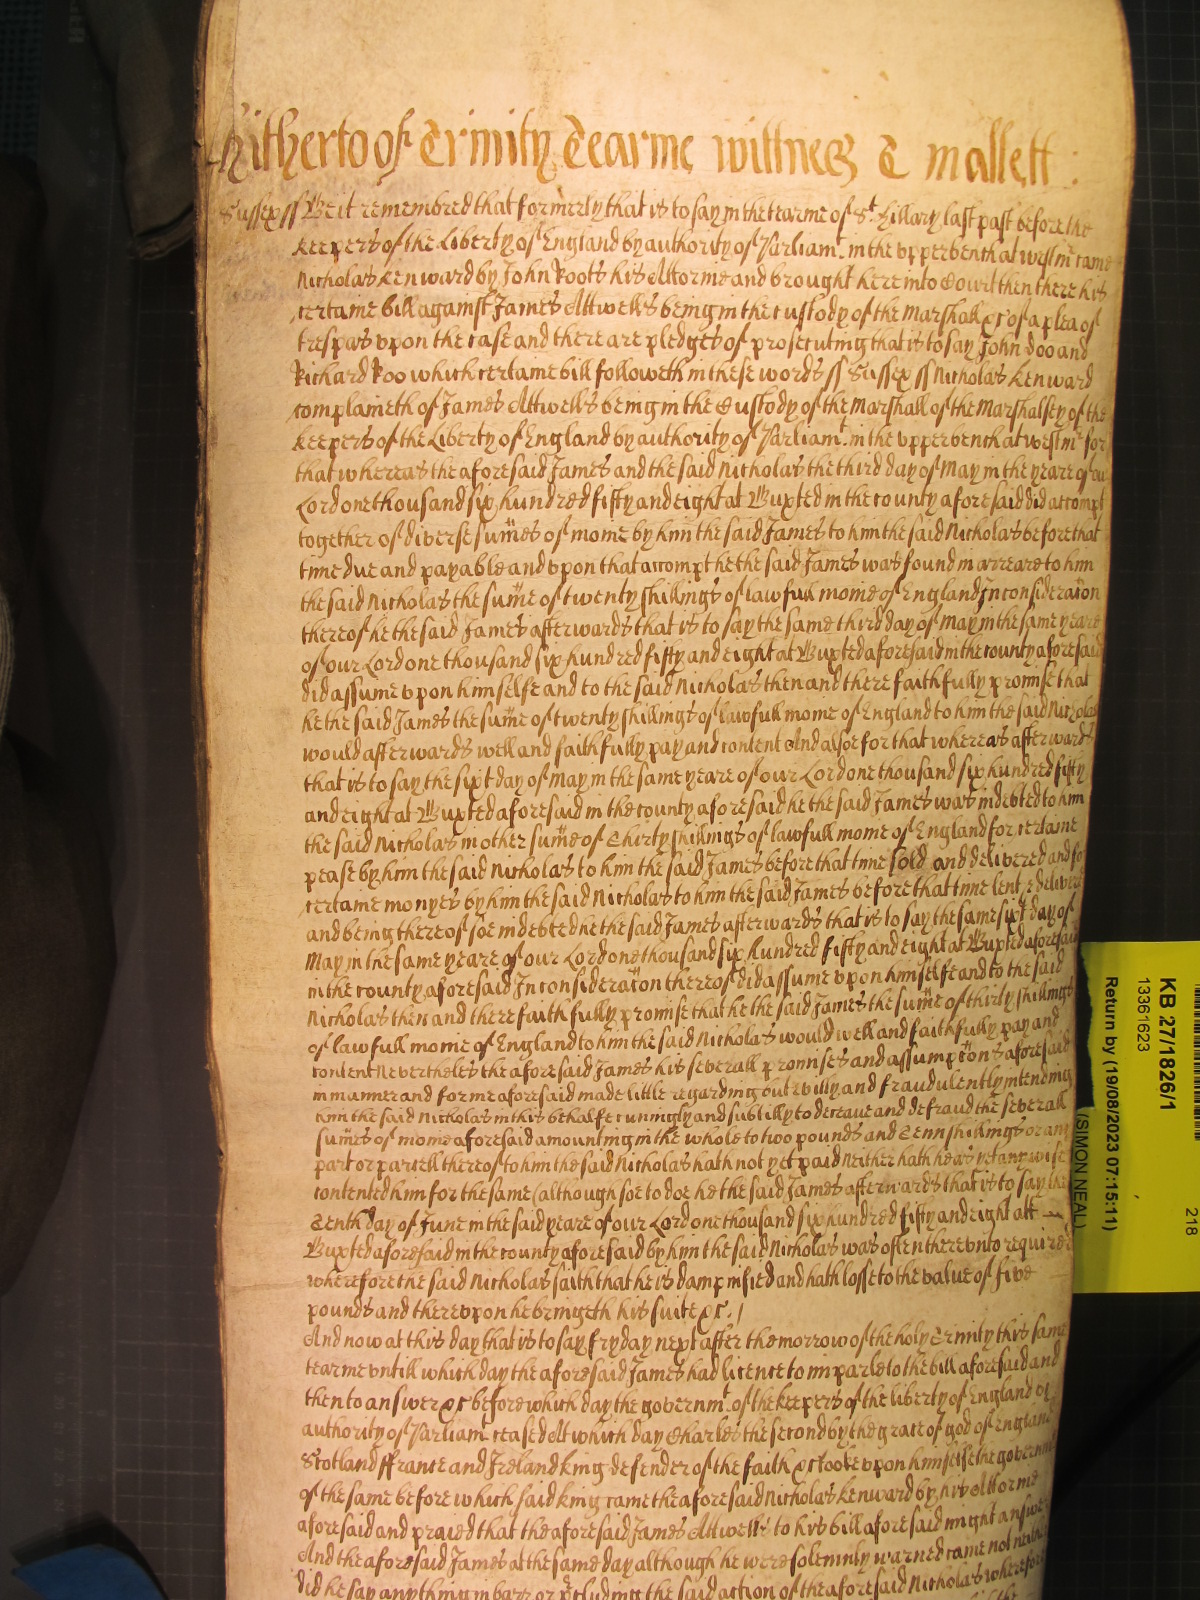 Hitherto of Trinity Tearme wittnes T Mallett :
Sussex ss Be it remembred that formerly that is to say in the tearme of St. Hillary last past before the
keepers of the Liberty of England by authority of Parliamt. in the upper bench at westmr came
Nicholas Kenward by John Roots his Attornie and brought here into Court then there his
certaine bill against James Attwells being in the custody of the Marshall &c of a plea of
trespas upon the case and there are pledges of prosecuting that is to say John doo and
Richard Roo which certaine bill followeth in these words ss Sussex ss Nicholas Kenward
complaineth of James Attwells being in the Custody of the Marshall of the Marshalsey of the
keepers of the Liberty of England by authority of Parliamt. in the upper bench at westmr for
that whereas the aforesaid James and the said Nicholas the third day of May in the yeare of our
Lord one thousand six hundred fifty and eight at Buxted in the county aforesaid did accompt
together of diverse sumes of monie by him the said James to him the said Nicholas before that
time due and payable and upon that accompt he the said James was found in arreare to him
the said Nicholas the sume of twenty shillings of lawfull monie of England In consideracon
thereof he the said James afterwards that is to say the same third day of May in the same yeare
of our Lord one thousand six hundred fifty and eight at Buxted aforesaid in the county aforesaid
did assume upon himselfe and to the said Nicholas then and there faithfully promise that
he the said James the sume of twenty shillings of lawfull monie of England to him the said Nicholas
would afterwards well and faithfully pay and content And alsoe for that whereas afterwards
that is to say the sixt day of May in the same yeare of our Lord one thousand six hundred fifty
and eight at Buxted aforesaid in the county aforesaid he the said James was indebted to him
the said Nicholas in other sume of Thirty shillings of lawfull monie of England for certaine
pease by him the said Nicholas to him the said James before that time sold and delivered and for
certaine monyes by him the said Nicholas to him the said James before that time lent & delivered
and being thereof soe indebted he the said James afterwards that is to say the same sixt day of
May in the same yeare of our Lord one thousand six hundred fifty and eight at Buxted aforesaid
in the county aforesaid In consideracon thereof did assume upon himselfe and to the said
Nicholas then and there faithfully promise that he the said James the sume of thirty shillings
of lawfull monie of England to him the said Nicholas would well and faithfully pay and
content Nevertheles the aforesaid James his severall promises and assumpcons aforesaid
in manner and forme aforesaid made little regarding but willy and fraudulently intending
him the said Nicholas in this behalfe cunningly and subtilly to deceave and defraud the severall
sumes of monie aforesaid amounting in the whole to two pounds and Tenn shillings or any
part or parcell thereof to him the said Nicholas hath not yet paid Neither hath he as yet any wise
contented him for the same (although soe to doe he the said James afterwards that is to say the
Tenth day of June in the said yeare of our Lord one thousand six hundred fifty and eight att
Buxted aforesaid in the county aforesaid by him the said Nicholas was often thereunto required
wherefore the said Nicholas saith that he is dampnified and hath losse to the value of five
pounds and thereupon he bringeth his suite &c. /
And now at this day that is to say fryday next after the morrow of the holy Trinity this same
tearme untill which day the aforesaid James had licence to imparle to the bill aforesaid and
then to answer &c before which day the governmt. of the keepers of the liberty of England by
authority of Parliamt. ceased At which day Charles the second by the grace of god of England
Scotland ffrance and Ireland king defender of the faith &c tooke upon himselfe the governmt
of the same before which said king came the aforesaid Nicholas Kenward by his Attornie
aforesaid and praied that the aforesaid James Attwells to his bill aforesaid might answer
And the aforesaid James at the same day although he were solemnly warned came not neither
did he say anything in barr or pcluding the said action of the aforesaid Nicholas wherefore
KB 27/1826/1
13361623
Return by (19/08/2023 07:15:11)
(SIMON NEAL)
218